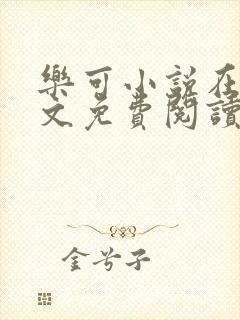 樂可小說在
文免費閱讀
金兮子